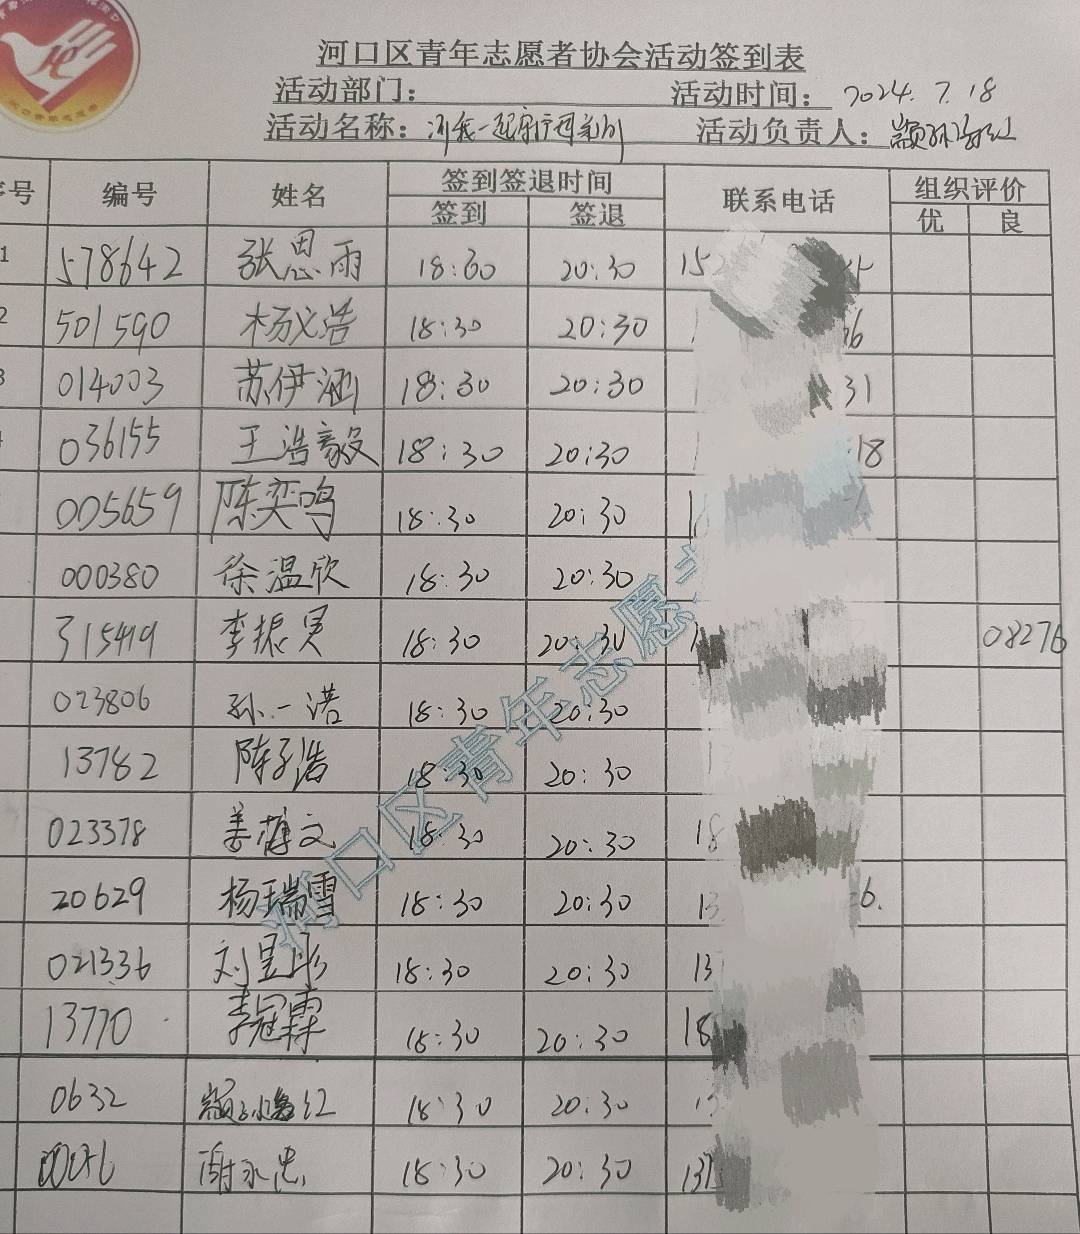 河口区青年志愿者协会活动签到表
活动部门： 活动时间： 2024.7.18
活动名称： 活动负责人：
序号 编号 姓名 签到签退时间 联系电话 组织评价
签到 签退 优 良
1 578642 张恩雨 18:30 20:30 152
2 501590 杨义浩 18:30 20:30
3 014003 苏伊涵 18:30 20:30 31
036155 王浩毅 18:30 20:30 18
005659 陈奕鸣 18:30 20:30
000380 徐温欣 18:30 20:30
315419 李振昊 18:30 20:30 08276
023806 孙一诺 18:30 20:30
13782 陈子浩 18:30 20:30
023378 姜博文 18:30 20:30 18
20629 杨瑞雪 18:30 20:30 13 6.
021336 刘昱彤 18:30 20:30 13
13770 李冠霖 18:30 20:30 18
0632 18:30 20:30
谢永忠 18:30 20:30 137
河口区青年志愿